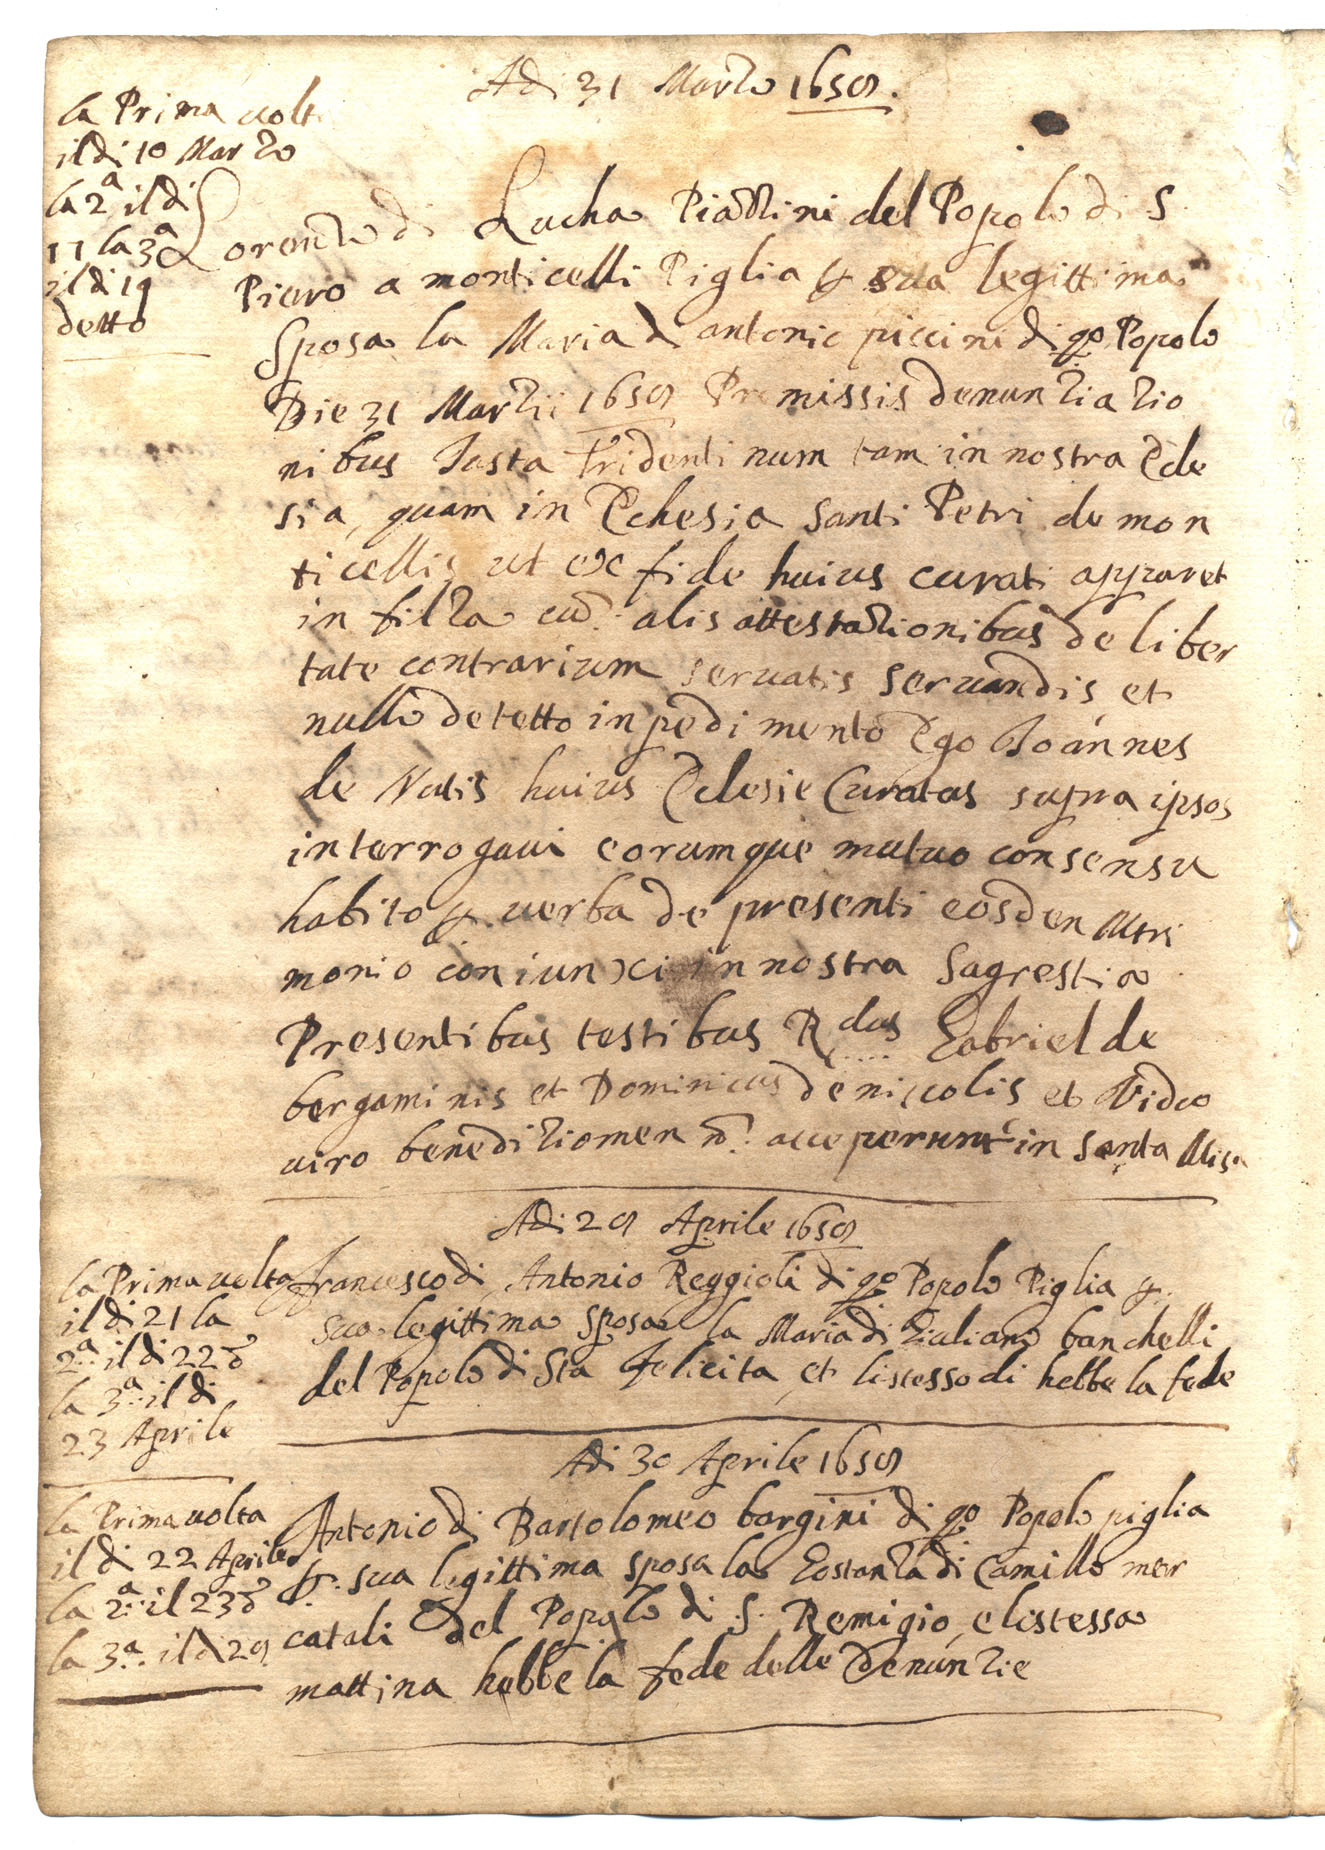 Adi 31 Marzo 1659.
la Prima volta
il di 10 Marzo
la 2ª il di
17 la 3ª
il di 19
detto
Lorenzo di Lucha Piazzini del Popolo di S.
Piero a monticelli Piglia p. sua legittima
Sposa la Maria di antonio piccini di qo. Popolo
Die 31 Martii 1659 Premissis denunziatio
nibus Iusta Tridentinum tam in nostra Ecle
sia, quam in Echesia Santi Petri de mon
ticellis ut ex fide huius curati apparet
in filza cu. alis attestazionibus de liber
tate contrarium servatis servandis, et
nullo detetto inpedimento Ego Joannes
de Natis huius Eclesie Curatus supra ipsos
interrogavi eorumque mutuo consensu
habito p. verba de presenti eosden Mtri
monio coniunxi in nostra Sagrestia
Presentibus testibus Rdus Gabriel de
bergaminis et Dominicus de niccolis et Video
viro beneditiomen n. acceperunt in Santa Misa
Adi 29 Aprile 1659
la Prima volta
il di 21 la
2ª. il di 22 d
la 3ª. il di
23 Aprile
francesco di Antonio Reggioli di qo Popolo Piglia p.
sua legittima sposa la Maria di Giuliano banchelli
del Popolo di Sta felicita, et listesso di hebbe la fede
Adi 30 Aprile 1659
la Prima volta
il di 22 Aprile
la 2ª. il 23 d
la 3ª. il di 29
Antonio di Bartolomeo bargini di qo Popolo piglia
p. sua legittima sposa la Costanza di Camillo mer
catali del Popolo di .S. Remigio, e listessa
mattina hebbe la fede delle denunzie